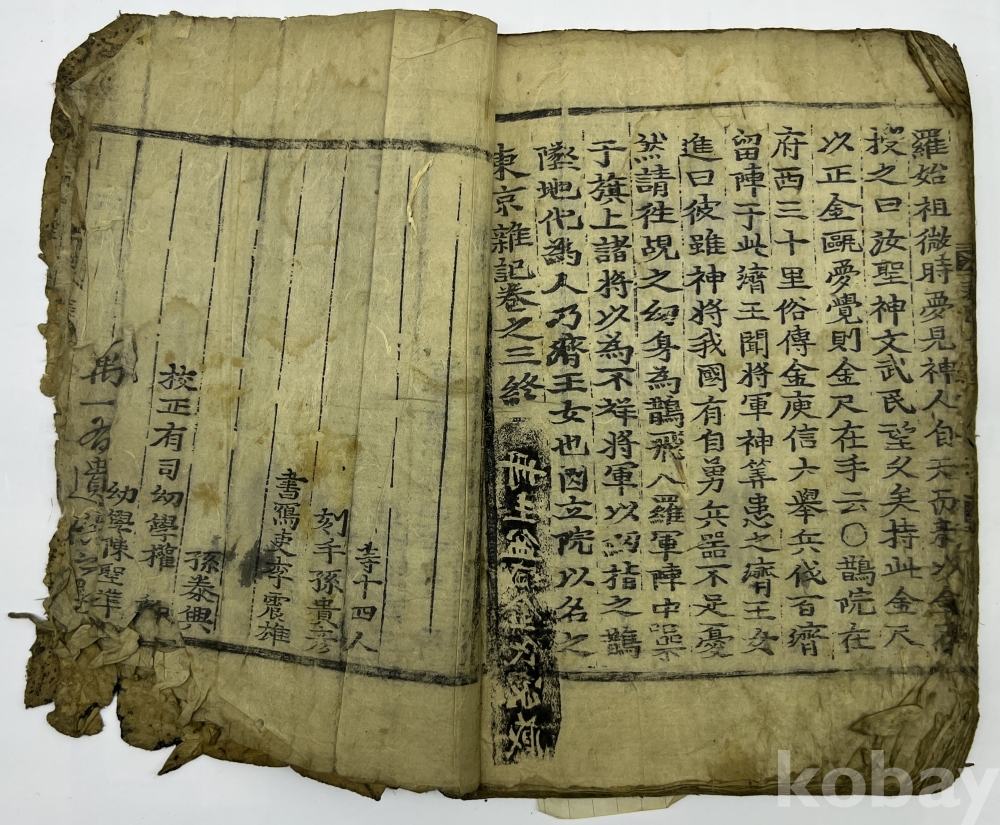 羅始祖微時夢見神人自天而來以金尺
授之曰汝聖神文武民望久矣持此金尺
以正金甌夢覺則金尺在手云〇鵲院在
府西三十里俗傳金庾信大舉兵伐百濟
留陣于此濟王聞將軍神筭患之濟王女
進曰彼雖神將我國有自勇兵器不足憂
然請往覘之幻身為鵲飛入羅軍陣中噪
于旗上諸將以為不祥將軍以釰指之鵲
墜地化為人乃濟王女也因立院以名之
東京雜記卷之三終
等十四人
刻手孫貴彦
書寫吏李震雄
孫泰興
校正有司幼學權
幼學陳聖準
kobay